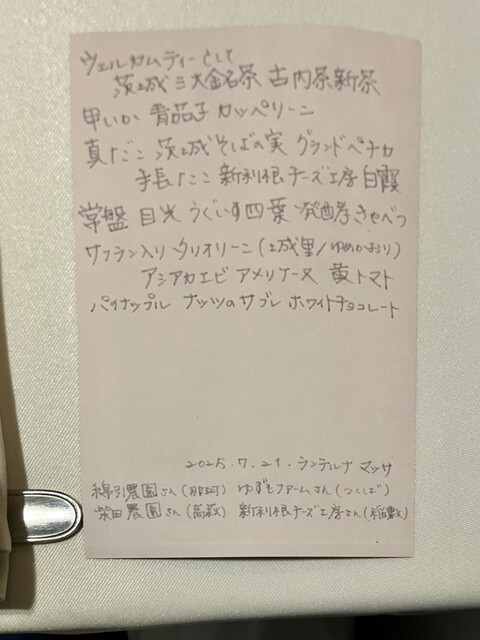 ウェルカムティーとして
茨城三大銘茶 古内茶新茶
甲いか 青茄子 カッペリーニ
真だこ 茨城そばの実 グランドペチカ
手長だこ 新利根チーズ工房 白霞
常盤 目光 うぐいす四葉 発酵きゃべつ
サフラン入り タリオリーニ(城里/ゆめかおり)
アシアカエビ アメリケーヌ 黄トマト
パイナップル ナッツのサブレ ホワイトチョコレート
2025.7.21. ランテルナ マッサ
綿引農園さん(那珂) ゆずもファームさん(つくば)
柴田農園さん(高萩) 新利根チーズ工房さん(稲敷)